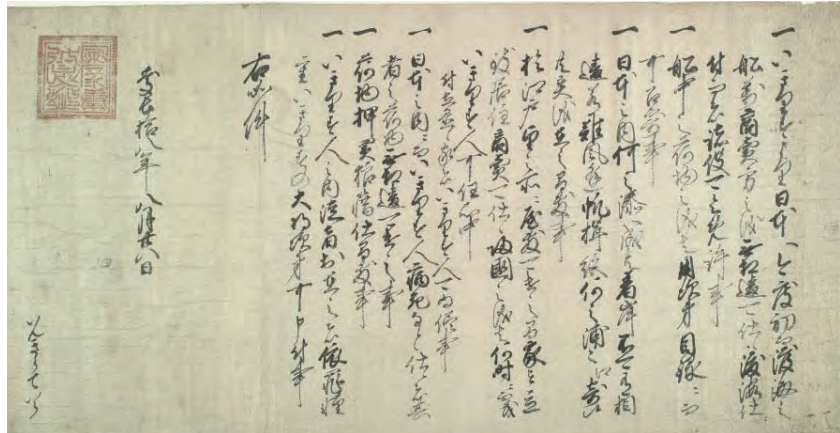 一 いきりすより日本へ今度初而渡海之
船万商売方之儀無相違可仕候渡海仕
付而ハ諸役可令免許事
一 船中之荷物之儀ハ用次第目録ニ而
可召寄事
一 日本之内何之湊へ成共着岸不可有相
違若難風逢帆楫絶何之浦々へ寄候
共異儀有之間敷事
一 於江戸望之所ニ屋敷可遣之間家を立
致居住商売可仕候帰国之儀ハ何時ニ而も
いきりす人可任心中事
付立置候家ハいきりす人可為儘事
一 日本之内ニ而いきりす人病死なと仕候者其
者之荷物無相違可遣之事
一 荷物押買狼藉仕間敷事
一 いきりす人之内徒者於有之者依罪軽
重いきりすの大将次第可申付事
右如件
慶長拾八年八月廿八日